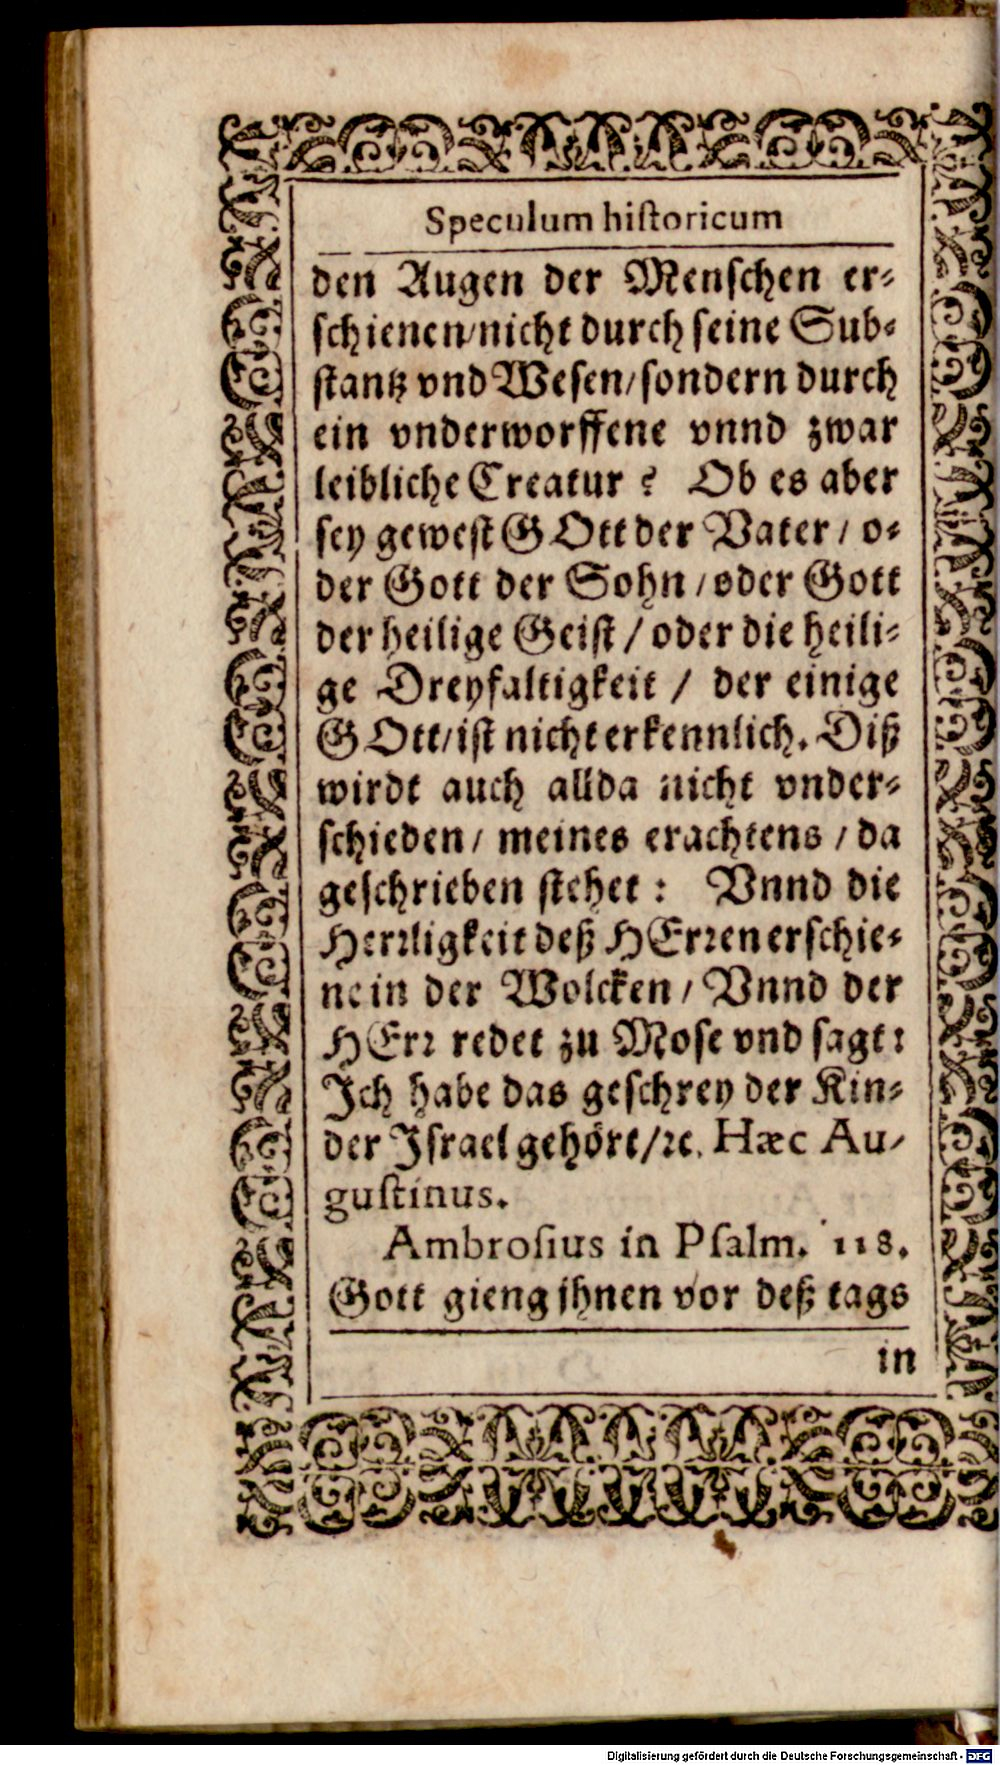 Speculum hiſtoricum
den Augen der Menſchen er⸗
ſchienen/nicht durch ſeine Sub⸗
ſtantz vnd Weſen/ſondern durch
ein vnderworffene vnnd zwar
leibliche Creatur? Ob es aber
ſey geweſt GOtt der Vater/ o⸗
der Gott der Sohn/oder Gott
der heilige Geiſt/oder die heili⸗
ge Dreyfaltigkeit/ der einige
GOtt/iſt nicht erkennlich. Diß
wirdt auch allda nicht vnder⸗
ſchieden/ meines erachtens/da
geſchrieben ſtehet: Vnnd die
Herꝛligkeit deß HErꝛen erſchie⸗
ne in der Wolcken/ Vnnd der
HErꝛ redet zu Moſe vnd ſagt:
Ich habe das geſchrey der Kin⸗
der Iſrael gehört/ꝛc. Hæc Au-
guſtinus.
Ambroſius in Pſalm. 118.
Gott gieng jhnen vor deß tags
in
Digitalisierung gefördert durch die Deutsche Forschungsgemeinschaft - DFG